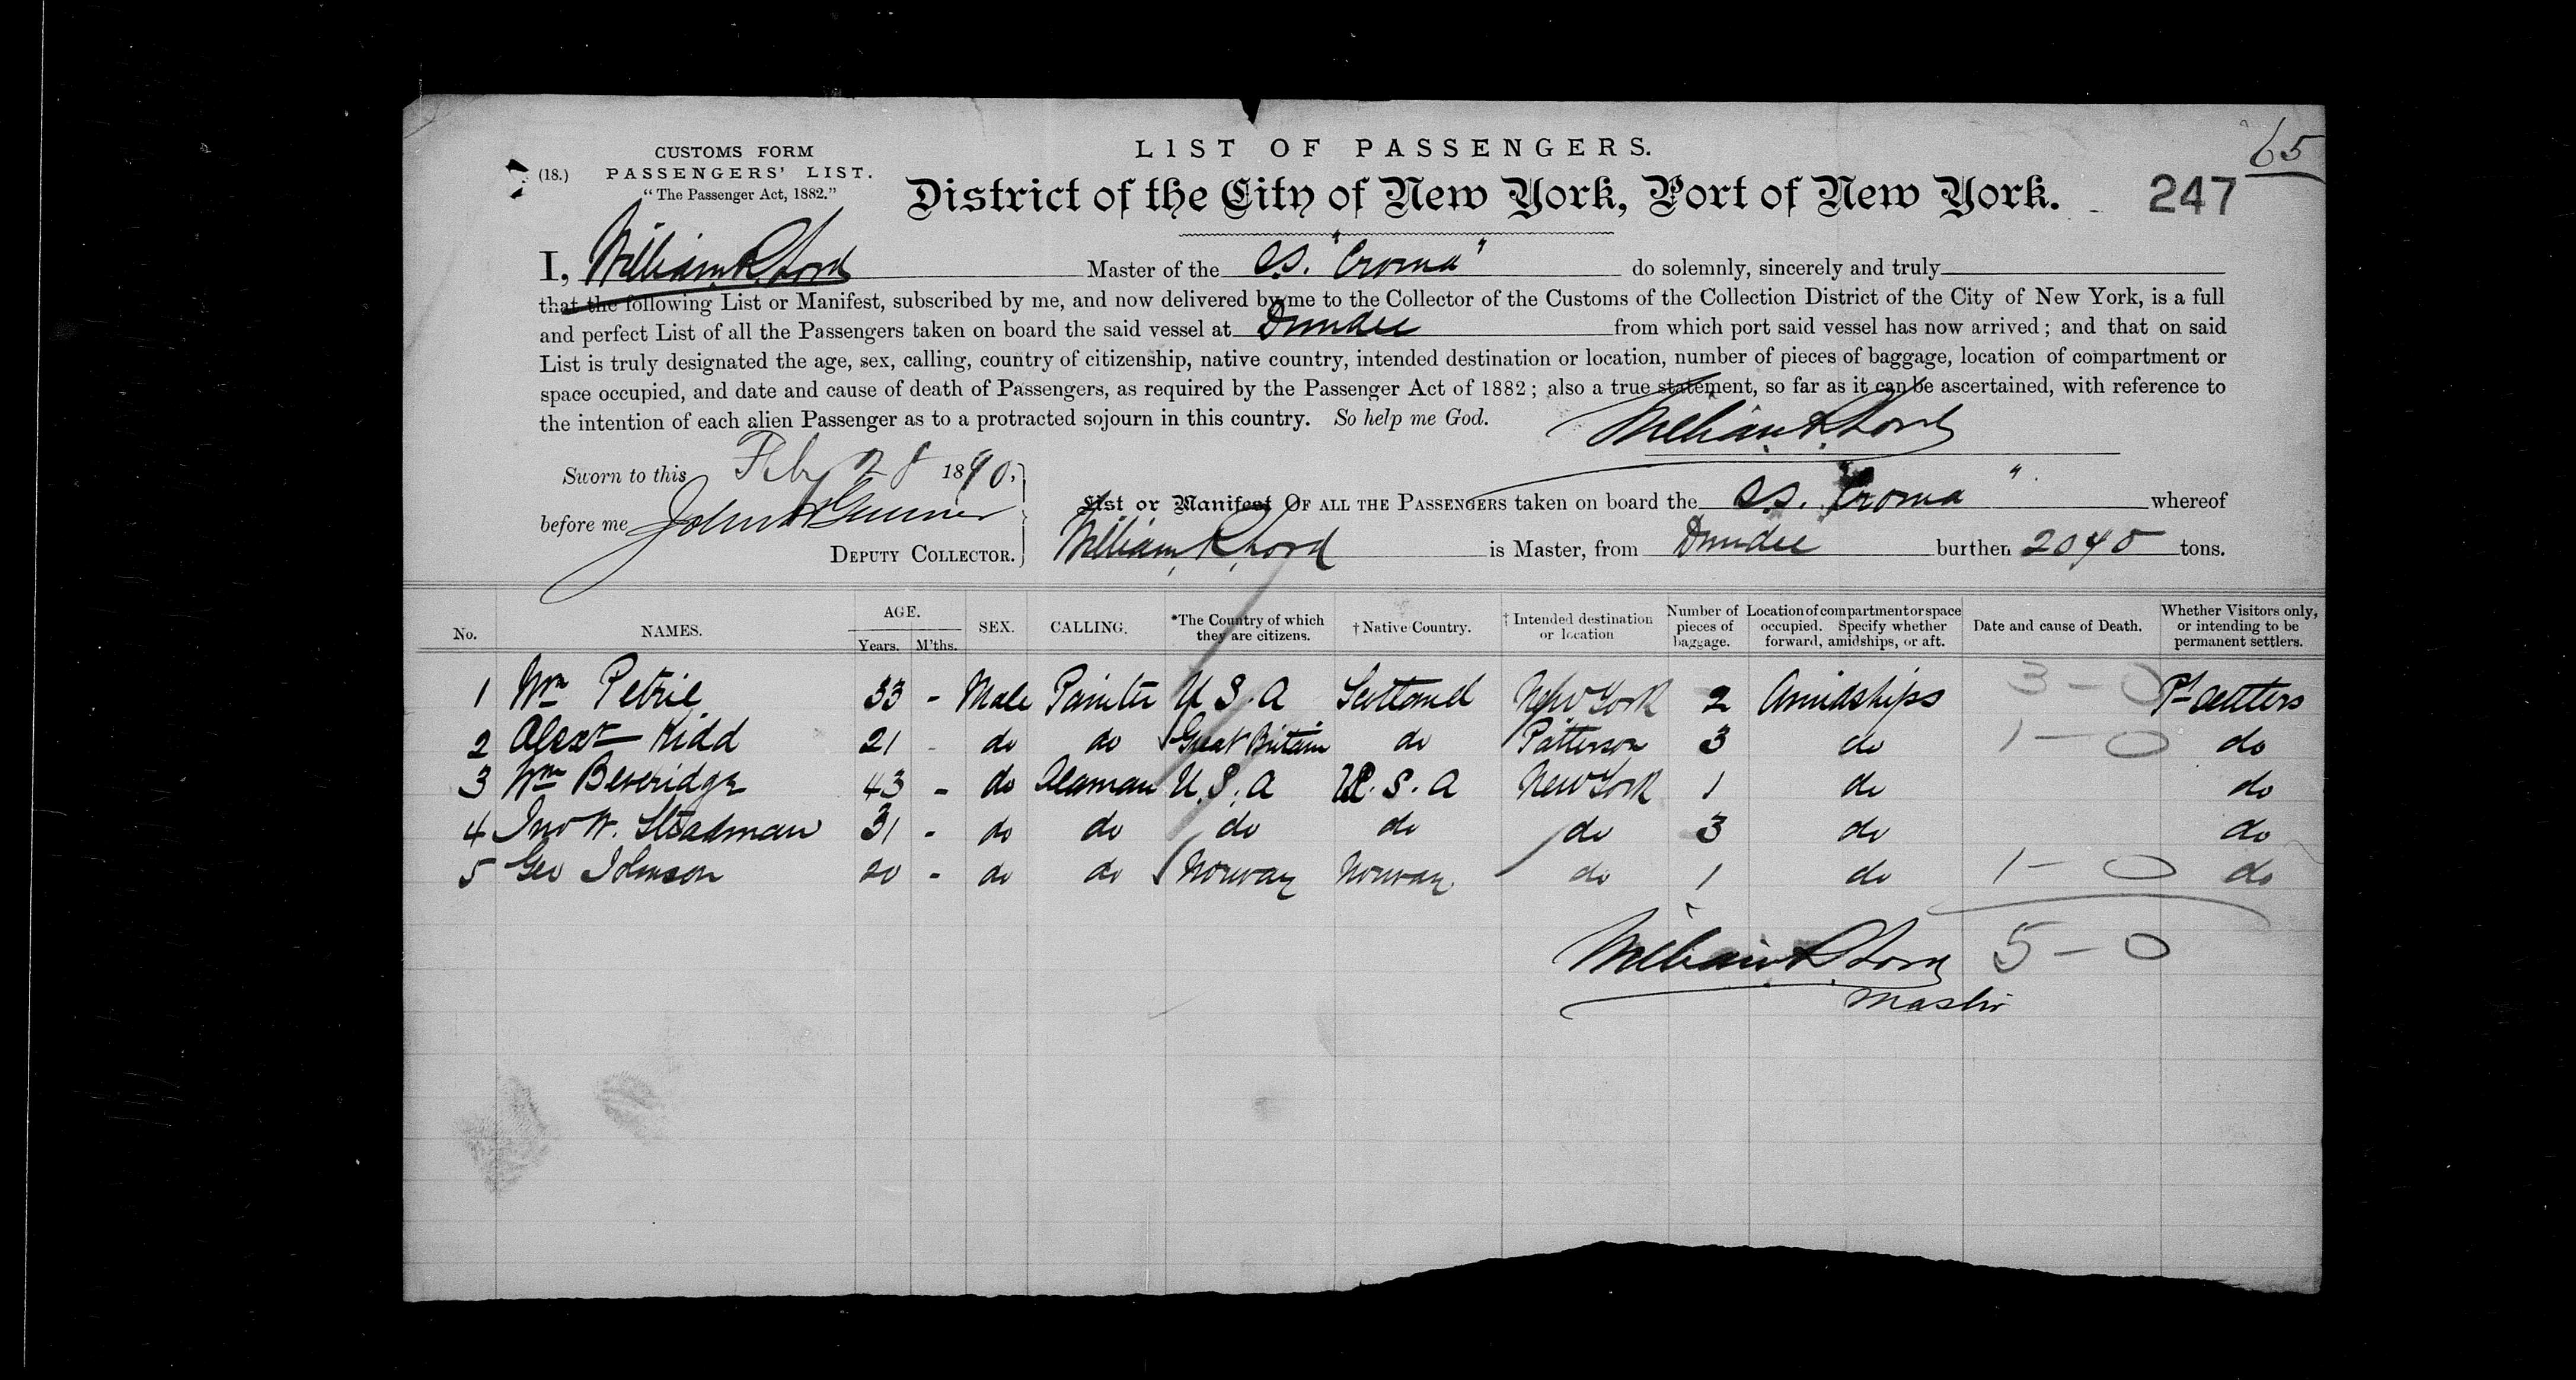 65
CUSTOMS FORM
(18.) PASSENGERS' LIST.
"The Passenger Act, 1882."
LIST OF PASSENGERS.
District of the City of New York, Port of New York.
247
I, William R Lord Master of the S.S. "Croma" do solemnly, sincerely and truly
that the following List or Manifest, subscribed by me, and now delivered by me to the Collector of the Customs of the Collection District of the City of New York, is a full
and perfect List of all the Passengers taken on board the said vessel at Dundee from which port said vessel has now arrived; and that on said
List is truly designated the age, sex, calling, country of citizenship, native country, intended destination or location, number of pieces of baggage, location of compartment or
space occupied, and date and cause of death of Passengers, as required by the Passenger Act of 1882; also a true statement, so far as it can be ascertained, with reference to
the intention of each alien Passenger as to a protracted sojourn in this country. So help me God.
William R. Lord
Sworn to this Feby 28 1890,
before me John
DEPUTY COLLECTOR.
List or Manifest OF ALL THE PASSENGERS taken on board the S.S. Croma" whereof
William R Lord is Master, from Dundee burthen 2040 tons.
No. NAMES. AGE. Years. M'ths. SEX. CALLING. *The Country of which they are citizens. †Native Country. †Intended destination or location Number of pieces of baggage. Location of compartment or space occupied. Specify whether forward, amidships, or aft. Date and cause of Death. Whether Visitors only, or intending to be permanent settlers.
1 Wm Petrie 33 - Male Painter U S. A Scotland New York 2 Amidships 3-0 Pt settlers
2 Alexr Kidd 21 - do do Great Britain do Patterson 3 do 1-0 do
3 Wm Beveridge 43 - do Seaman U. S. A U. S. A New York 1 do do
4 Jno W. Steadman 31 - do do do do do 3 do do
5 Geo Johnson 20 - do do Norway Norway. do 1 do 1-0 do
William R Lord 5-0
Master